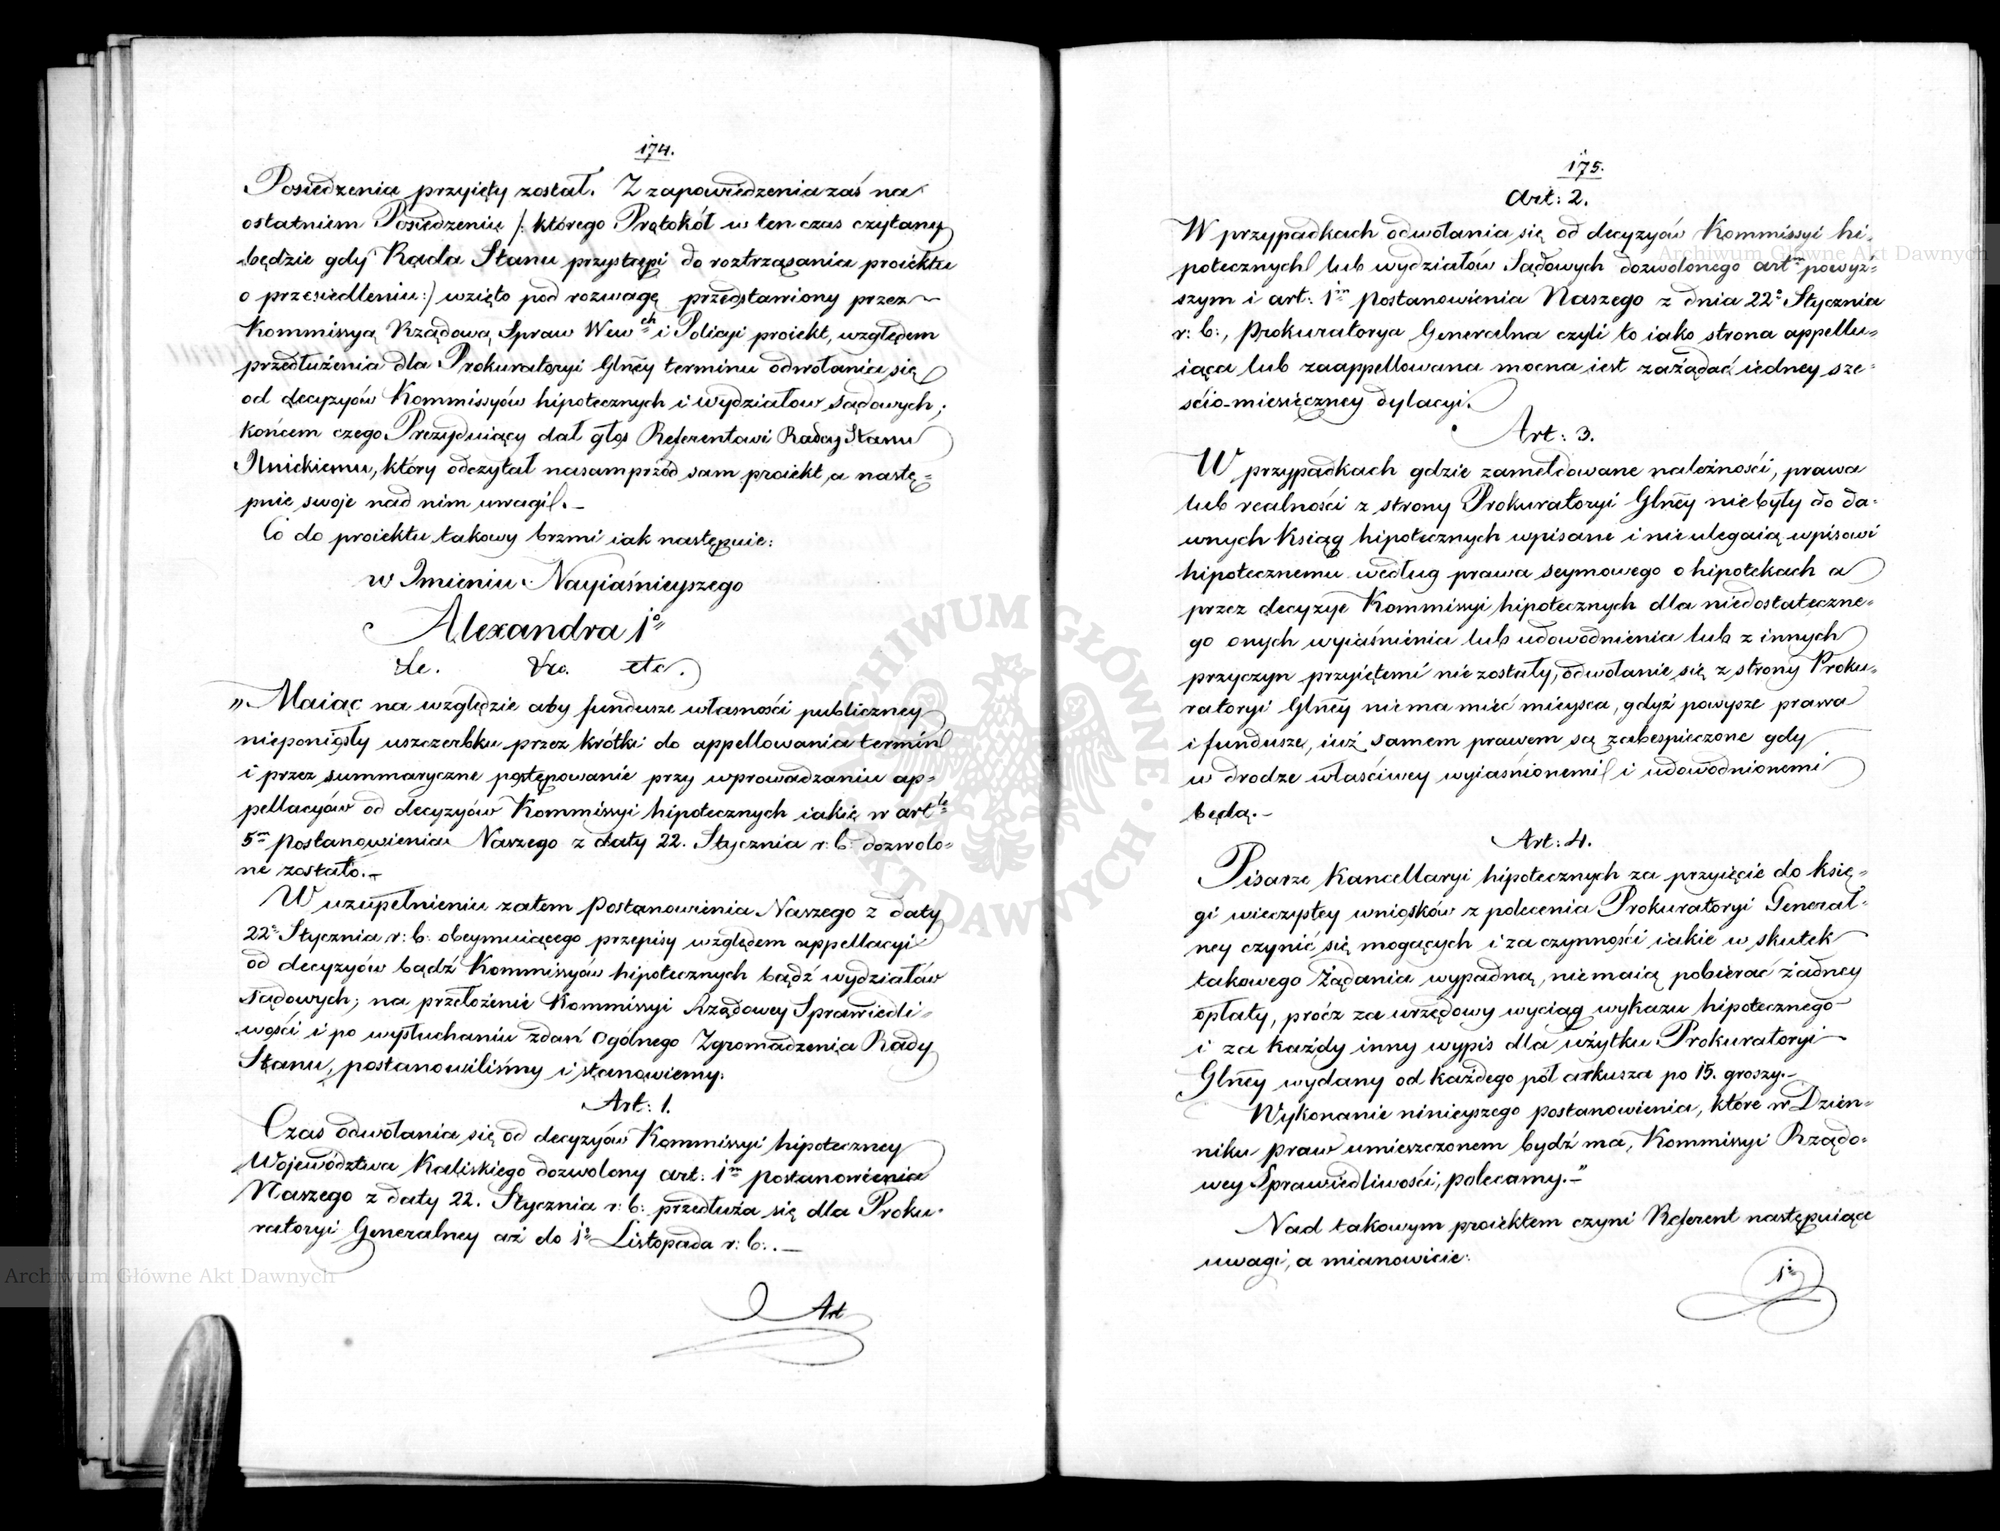 174.
Posiedzenia przyięty został. Z zapowiedzenia zaś na
ostatniem Posiedzeniu /: którego Protokół w ten czas czytany
będzie gdy Rada Stanu przystąpi do roztrząsania proiektu
o przesiedleniu:/ wzięto pod rozwagę przedstawiony przez
Kommissyą Rządową Spraw Wewch i Policyi proiekt, względem
przedłużenia dla Prokuratoryi Glney terminu odwołania się
od decyzyów Kommissyów hipotecznych i wydziałow sądowych;
końcem czego Prezyduiący dał głos Referentowi Radcy Stanu
Jłnickiemu, który odczytał nasamprzód sam proiekt, a nastę-
pnie swoje nad nim uwagi.—
Co do proiektu takowy brzmi iak następuie:
w Jmieniu Nayiaśnieyszego
Alexandra 1o
etc. etc. etc.
„Maiąc na względzie aby fundusze własności publiczney
nieponiosły uszczerbku przez krótki do appellowania termin
i przez summaryczne postępowanie przy wprowadzaniu ap-
pellacyów od decyzyów Kommissyi hipotecznych iakie w artle
5m postanowienia Naszego z daty 22. Stycznia r: b: dozwolo-
ne zostało.—
W uzupełnieniu zatem Postanowienia Naszego z daty
22o Stycznia r: b: obeymuiącego przepisy względem appellacyi
od decyzyów bądź Kommissyów hipotecznych bądź wydziałów
sądowych; na przełożenie Kommissyi Rządowey Sprawiedli-
wości i po wysłuchaniu zdań Ogólnego Zgromadzenia Rady
Stanu, postanowiliśmy i stanowiemy:
Art: 1.
Czas odwołania się od decyzyów Kommissyi hipoteczney
Województwa Kaliskiego dozwolony art: 1m postanowienia
Naszego z daty 22. Stycznia r: b: przedłuża się dla Proku-
ratoryi Generalney aż do 1o Listopada r: b:.—
Art
175.
Art: 2.
W przypadkach odwołania się od decyzyów Kommissyi hi-
potecznych lub wydziałów Sądowych dozwolonego artm powyż-
szym i art: 1m Postanowienia Naszego z dnia 22o Stycznia
r: b:, Prokuratorya Generalna czyli to iako strona appellu-
iąca lub zaappellowana mocna iest zażądać iedney sze-
ścio-miesięczney dylacyi.
Art: 3.
W przypadkach gdzie zameldowane należności, prawa
lub realności z strony Prokuratoryi Glney nie były do da-
wnych Ksiąg hipotecznych wpisane i nie ulegaią wpisowi
hipotecznemu według prawa seymowego o hipotekach a
przez decyzye Kommissyi hipotecznych dla niedostateczne-
go onych wyiaśnienia lub udowodnienia lub z innych
przyczyn przyiętemi nie zostały, odwołanie się z strony Proku-
ratoryi Glney nie ma mieć mieysca, gdyż powyższe prawa
i fundusze, iuż samem prawem są zabespieczone gdy
w drodze właściwey wyiaśnionemi i udowodnionemi
będą.—
Art: 4.
Pisarze Kancellaryi hipotecznych za przyięcie do księ-
gi wieczystey wniosków z polecenia Prokuratoryi General-
ney czynić się mogących i za czynności iakie w skutek
takowego Żądania wypadną, nie maią pobierać żadney
opłaty, prócz za urzędowy wyciąg wykazu hipotecznego
i za każdy inny wypis dla użytku Prokuratoryi
Glney wydany od każdego pół arkusza po 15. groszy.—
Wykonanie ninieyszego postanowienia, które w Dzien-
niku praw umieszczonem bydź ma, Kommissyi Rządo-
wey Sprawiedliwości, polecamy.”—
Nad takowym proiektem czyni Referent następuiące
uwagi, a mianowicie:
1o
ARCHIWUM GŁÓWNE AKT DAWNYCH
Archiwum Główne Akt Dawnych
Archiwum Główne Akt Dawnych